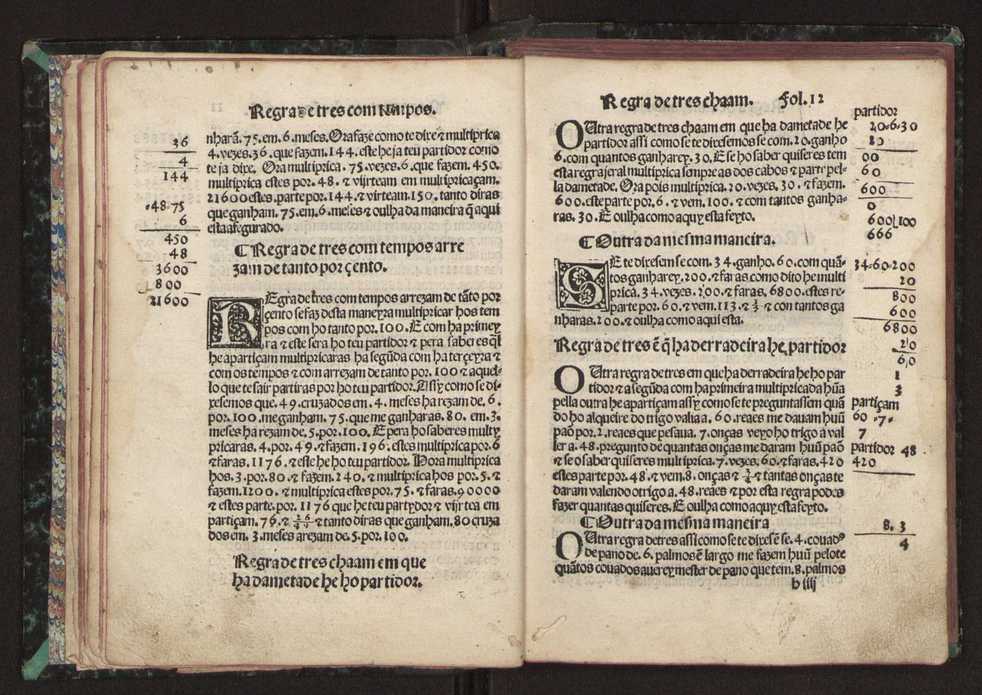 Regra de tres com tempos.
36
4
144
.48.75
6
450
48
3600
800
21600
nharã. 75. em. 6. meses. Ora faze como te dixe &amp; multiprica
4. vezes. 36. que fazem. 144. este he ja teu partidor como
te ja dixe. Ora multiprica. 75. vezes. 6. que fazem. 450.
multiprica estes por. 48. &amp; vijrteam em multipricaçam.
21600 estes. parte por. 144. &amp; virteam. 150. tanto diras
que ganham. 75. em. 6. meses &amp; oulha da maneira q̃ aqui
esta afegurado.
Regra de tres com tempos arre
zam de tanto por çento.
REgra de tres com tempos arrezam de tãto por
çento se faz desta maneyra multipricar hos tem
pos com ho tanto por. 100. E com ha primey
ra &amp; este sera ho teu partidor &amp; pera saber es q̃l
he apartiçam multipricaras ha segũda com ha terçeyra &amp;
com os tempos &amp; com arrezam de tanto por. 100 &amp; aquel-
lo que te sair partiras por ho teu partidor. Assy como se di-
xesemos que. 49. cruzados em. 4. meses ha rezam de. 6.
por. 100. me ganham. 75. que me ganharas. 80. em. 3.
meses ha rezam de. 5. por. 100. E pera ho saberes multy
pricaras. 4. por. 49. &amp; fazem. 196. estes multiprica por. 6
&amp; faras. 1176. &amp; este he ho teu partidor. Hora multiprica
hos. 3. por. 80. &amp; fazem. 240. &amp; multiprica hos por. 5. &amp;
fazem. 1200. &amp; multiprica estes por. 75. &amp; faras. 90000
&amp; estes parte. por. 1176 que he teu partydor &amp; vijrtea em
partiçam. 76. &amp; &amp; tanto diras que ganham. 80 cruza
dos em. 3. meses arezam de. 5. por. 100.
Regra de tres chaam em que
ha dametade he ho partidor.
Regra de tres chaam. Fol. 12
OUtra regra de tres chaam em que ha dametade he
partidor assi como se te dixesemos se com. 20. ganho
6. com quantos ganharey. 30. E se ho saber quiseres tem
esta regra jeral multiprica sempre as dos cabos &amp; parte pel-
la dametade. Ora pois multiprica. 20. vezes. 30. &amp; fazem.
600. este parte por. 6. &amp; vem. 100. &amp; com tantos ganha-
ras. 30. E oulha como aquy esta feyto.
partidor
20.6.30
80
00
60
600
0
600|100
666
Outra da mesma maneira.
SE te dixesem se com. 34. ganho. 60. com quã-
tos ganharey. 200. &amp; faras como dito he multi
prica. 34. vezes. 200. &amp; faras. 6800. estes re-
parte por. 60. &amp; vem. 113. &amp; &amp; com tantos ga
nharas. 200. &amp; oulha como aqui esta.
34.60.200
20
800
600
6800
20
60
1
3
Regra de tres ẽ q̃ ha derradeira he. partidor
OUtra regra de tres em que ha derradeira he ho par
tidor &amp; a segũda com ha primeira multiplicada hũa
pella outra he apartiçam assy como se te preguntassem quã
do ho alqueire do trigo valia a. 60. reaes me dauam huũ
pao por. 2. reaes que pesaua. 7. onças veyo ho trigo a val
ler a. 48. pregunto de quantas onças me daram huũ pao
&amp; se o saber quiseres multiprica. 7. vezes. 60. &amp; faras. 420
estes parte por. 48. &amp; vem. 8. onças &amp; &amp; tantas onças te
daram valendo o trigo a. 48. reaes &amp; por esta regra podes
fazer quantas quiseres. E oulha como aquy esta feyto.
partiçam
60 .7.
7
partidor 48
420
Outra da mesma maneira
OUtra regra de tres assi como se te dixese se. 4. couados
de pano de. 6. palmos ẽ largo me fazem huũ pelote
quãtos couados auerey mester de pano que tem. 8. palmos
8. 3
4
b iiij